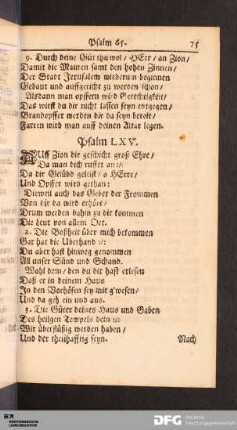 Psalm 65. 75
9. Durch deine Güt thu wol / HErr / an Zion /
Damit die Mauren samt den hohen Zinnen /
Der Stadt Jerusalem wiederum beginnen
Gebaut und auffgericht zu werden schon /
Alsdann man opffern wird Gerechtigkeit /
Das wirst du dir nicht lassen seyn entgegen /
Brandopffer werden dir da seyn bereit /
Farren wird man auff deinen Altar legen.
Psalm LXV.
AUff Zion dir geschicht groß Ehre /
Da man dich ruffet an :/:
Da dir Gelübd geleist / o HErre /
Und Opffer wird gethan:
Dieweil auch das Gebet der Frommen
Von dir da wird erhört /
Drum werden dahin zu dir kommen
Die Leut von allem Ort.
2. Die Boßheit über mich bekommen
Gar hat die Uberhand :/:
Du aber hast hinweg genommen
All unser Sünd und Schand.
Wohl dem / den du dir hast erlesen
Daß er in deinem Haus
In den Vorhöfen sey mit g'wesen /
Und da geh ein und aus.
3. Die Güter deines Haus und Gaben
Des heilgen Tempels dein :/:
Wir überflüßig werden haben /
Und der theilhafftig seyn.
Nach
DFG Deutsche
Forschungsgemeinschaft